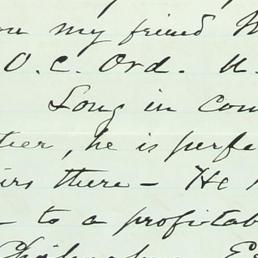 my friend
O. C. Ord. U.
Long in con
tier, he is perfe
irs there - He
- to a profitab